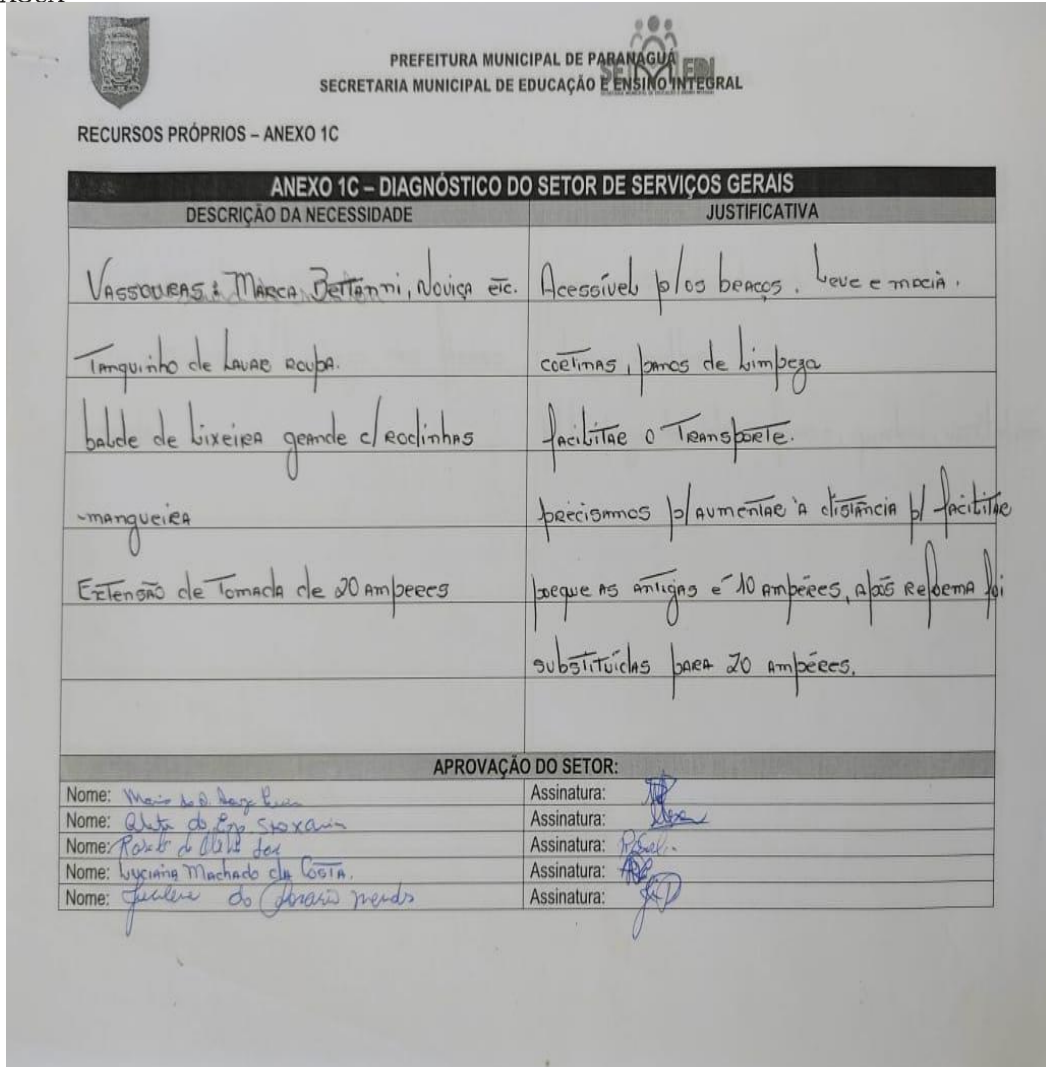 PREFEITURA MUNICIPAL DE PARANAGUÁ
SECRETARIA MUNICIPAL DE EDUCAÇÃO E ENSINO INTEGRAL
RECURSOS PRÓPRIOS – ANEXO 1C
ANEXO 1C – DIAGNÓSTICO DO SETOR DE SERVIÇOS GERAIS
DESCRIÇÃO DA NECESSIDADE JUSTIFICATIVA
VASSOURAS: MARCA Bettanni, Noviça etc. Acessível p/os braços. Leve e macia.
Tanquinho de LAVAR ROUPA. cortinas, panos de Limpeza
balde de Lixeira grande c/ Rodinhas facilitar o Transporte.
-mangueira precisamos p/ aumentar a distância p/ facilitar
Extensão de Tomada de 20 Amperes porque as antigas é 10 ampéres, após Reforma foi
substituídas para 20 ampéres.
APROVAÇÃO DO SETOR:
Nome: Assinatura:
Nome: Assinatura:
Nome: Assinatura:
Nome: Luciana Machado da Costa. Assinatura:
Nome: Assinatura: